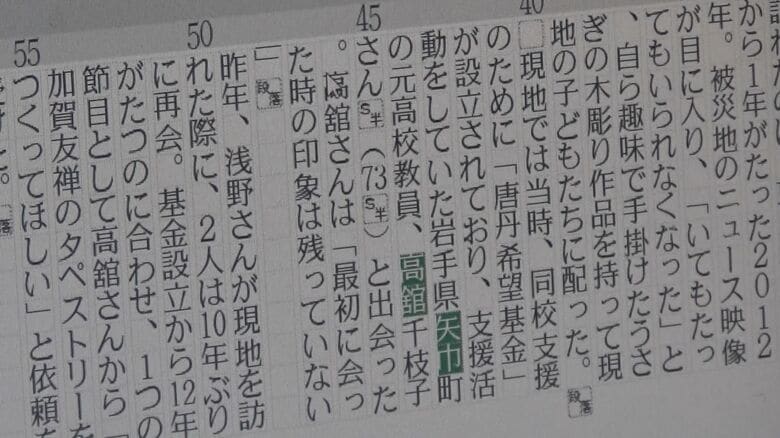 から1年がたった2012
年。被災地のニュース映像
が目に入り、「いてもたっ
てもいられなくなった」と
、自ら趣味で手掛けたうさ
ぎの木彫り作品を持って現
地の子どもたちに配った。段落
40
現地では当時、同校支援
のために「唐丹希望基金」
が設立されており、支援活
動をしていた岩手県矢巾町
の元高校教員、高舘千枝子
45
さんS半（73S半）と出会った
。高舘さんは「最初に会っ
た時の印象は残っていない
」段落
昨年、浅野さんが現地を訪
50
れた際に、2人は10年ぶり
に再会。基金設立から12年
がたつのに合わせ、1つの
節目として高舘さんから「
加賀友禅のタペストリーを
55
つくってほしい」と依頼